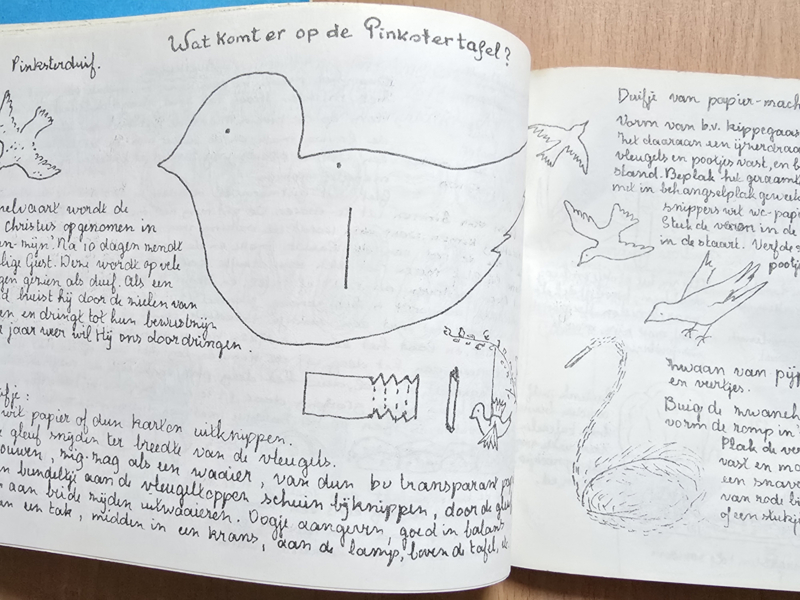 Wat komt er op de Pinkstertafel?
Pinksterduif.
wordt de
Christus opgenomen in
mijn. Na 10 dagen
Geest. Deze wordt op vele
gezien als duif. Als een
huist hij door de zielen van
en en dringt tot hun bewustzijn
jaar weer wil Hij ons doordringen.
wit papier of dun karton uitknippen.
gleuf snijden ter breedte van de vleugels.
zig-zag als een waaier, van dun bv transparant
bundeltje aan de vleugeltoppen schuin bijknippen, door de gleuf
aan beide zijden uitwaaieren. Oogje aangeven, goed in balans
een tak, midden in een krans, aan de lamp, boven de tafel,
Duifje van papier-mach
Vorm van b.v. kippegaas
het daaraan een ijzerdraa
vleugels en pootjes vast, en b
stand. Beplak het geraamt
met in behangselplak gewei
snippers wit wc-papi
Steek de in de
in de staart. Verf de
pootj
Zwaan van pijp
en veertjes.
Buig de zwaneh
vorm de romp in
Plak de ver
vast en ma
een snave
van rode
of een stukj